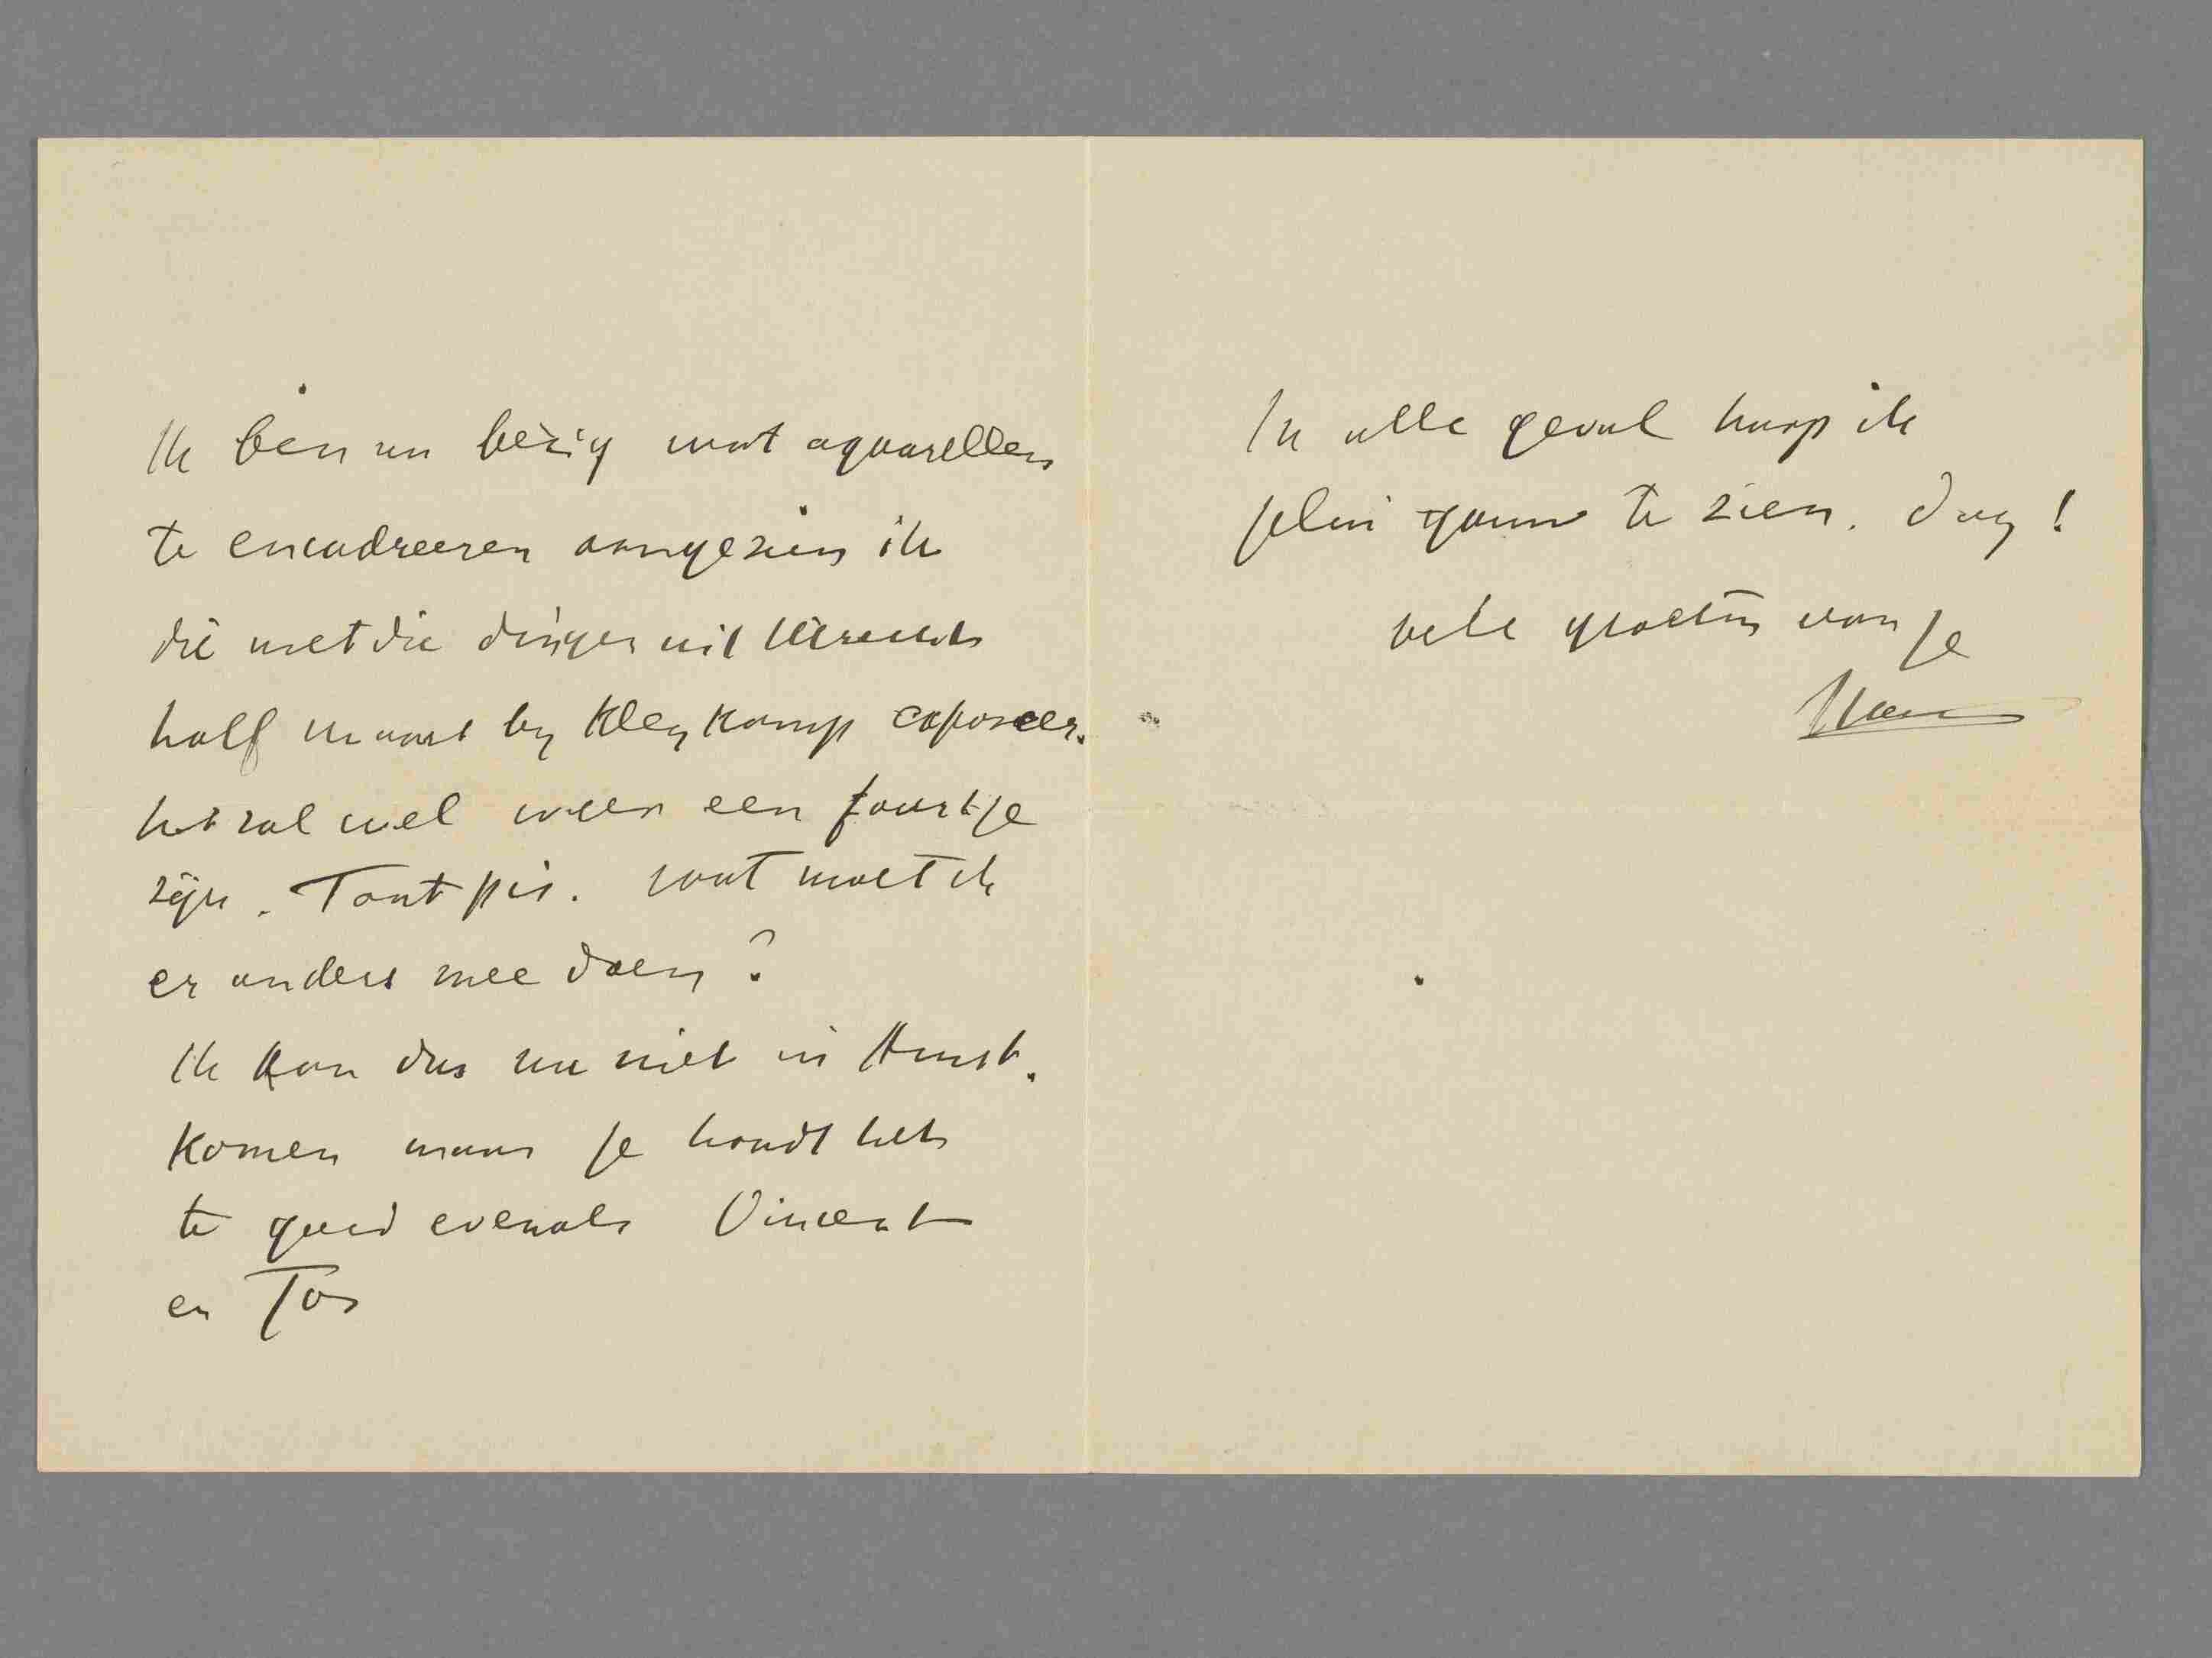 Ik ben nu bezig wat aquarellen
te encadreeren aangezien ik
die met die dingen uit Utrecht
half maart by Kleykamp exposeer.
het zal wel weer een
zijn. Tant pis. wat moet ik
er anders mee doen?
Ik kan dus nu niet in Amst.
komen maar je houdt het
te goed evenals Vincent
en Jos
In alle geval hoop ik
jelui gauw te zien. Dag!
vele groeten van je